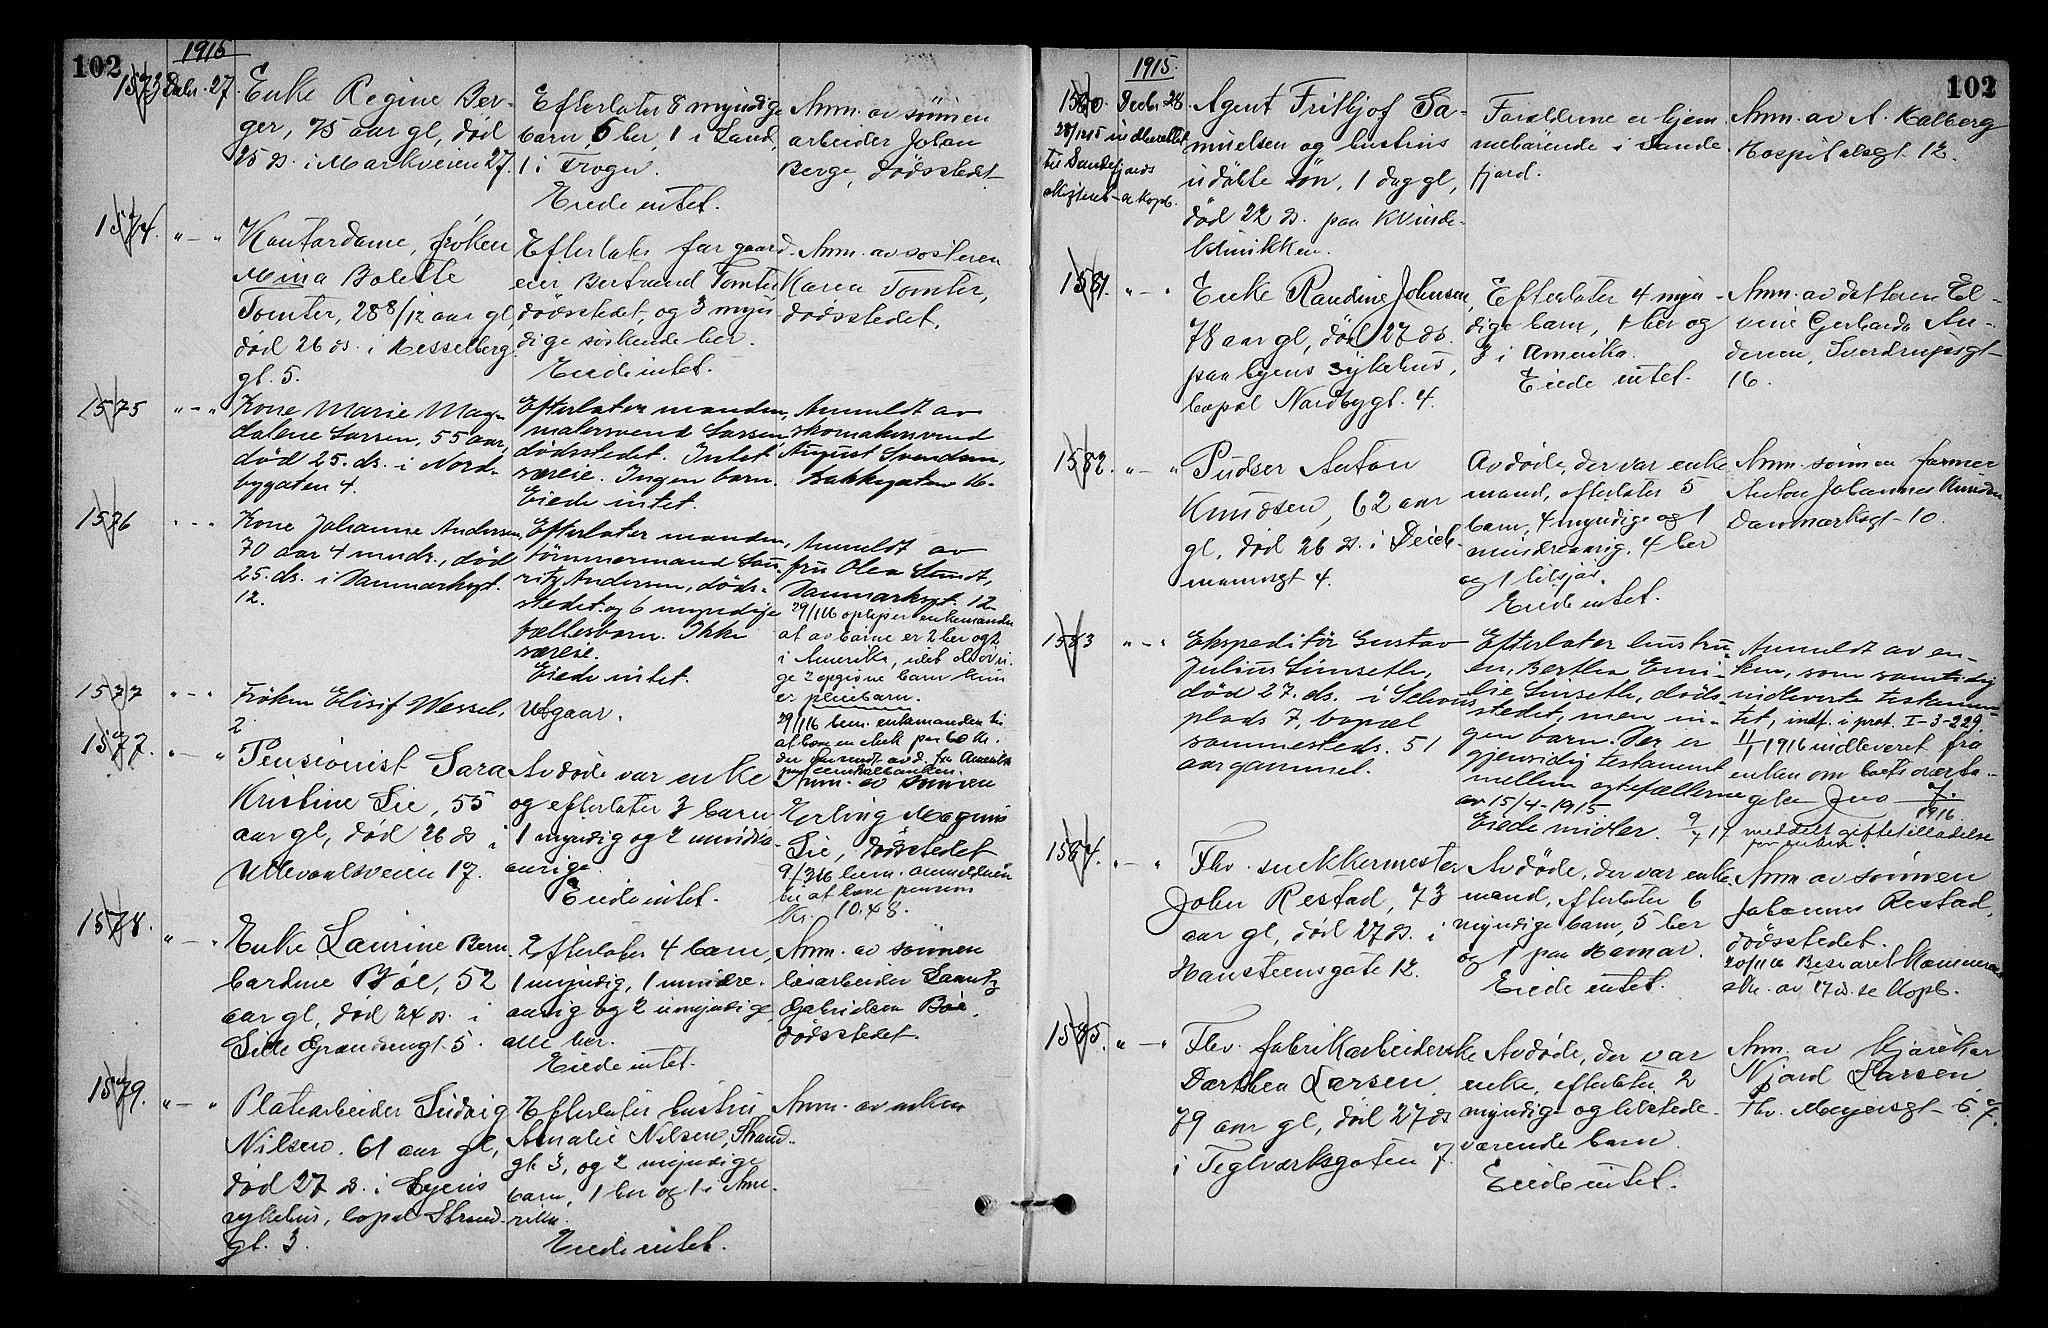 102
1915
1573 Decbr. 27.
Enke Regine Ber-
ger, 75 aar gl, død
25 ds. i Markveien 27.
Efterlater 8 myndige
barn, 6 her, 1 i Land,
1 i Drogn.
Eiede intet.
Anm. av sönnen
arbeider Johan
Berge, dödsstedet.
1574. " — "
Kontordame, fröken
Mina Bolette
Tomter, 28 8/12 aar gl,
död 26 ds. i Hesselberg
gt. 5.
Efterlater far gaard
eier Bertrand Tomter
dödsstedet, og 3 myn
dige söskende her.
Eiede intet.
Anm. av sösteren
Karen Tomter,
dödsstedet.
1575 " — "
Kone Marie Mag-
dalene Larsen, 55 aar,
död 25. ds. i Nord-
bygaten 4.
Efterlater manden,
malersvend Larsen
dödsstedet. Intet
særeie. Ingen barn.
Eiede intet.
Anmeldt av
skomakersvend
August Svendsen,
Bakkegaten 16.
1576 " — "
Kone Johanne Andersen,
70 aar 4 mnds., död
25. ds. i Danmarksgt.
12.
Efterlater manden,
tömmermand Lau-
ritz Andersen, döds-
stedet og 6 myndige
fællesbarn. Ikke
særeie.
Eiede intet.
Anmeldt av
fru Olea Lundt,
Danmarksgt. 12
29/1 16 oplyser enkemanden
at av barne er 2 her og 2
i Amerika, idet de övri-
ge 2 opgivne barn kun
er pleiebarn.
29/1 16 bem. enkemanden til
at have en chek paa 60 Kr.
1577 " — "
Fröken Elisif Wessel.
Utgaar.
1577. " — "
Pensionist Sara
Kristine Lie, 55
aar gl, död 26 ds i
Ullevaalsveien 17.
Avdöde var enke
og efterlater 3 barn
1 myndig og 2 mindre-
aarige.
Eiede intet.
Anm. av sönnen
Erling Magnus
Lie, dödsstedet
9/3 16 bem. anmelderen
til at have pension
Kr. 10.48.
1578. " — "
Enke Laurine Bern
hardine Böe, 52
aar gl, död 24 ds. i
Lille Grændsengt. 5.
Efterlater 4 barn,
1 myndig, 1 mindre-
aarig og 2 umyndige,
alle her.
Eiede intet.
Anm. av sönnen
lösarbeider Lauritz
Gabrielsen Böe,
dödsstedet.
1579. " — "
Platearbeider Ludvig
Nilsen, 61 aar gl,
död 27 ds. i Byens
sykehus, bopæl Strand-
gt. 3.
Efterlater hustru
Amalie Nilsen, Strand-
gt. 3, og 2 myndige
barn, 1 her og 1 i Ame-
rika.
Eiede intet.
Anm. av enken
102
1915.
1580. Decbr 28.
28/12 15 indberettet
til Sandefjords
skifteret
Agent Fritjof Sa-
muelsen og hustrus
udöbte sön, 1 dag gl,
död 22 ds. paa Kvinde-
klinikken.
Forældrene er hjem
mehörende i Sande-
fjord.
Anm. av A. Kalberg
Hospitalsgt. 12.
1581. " — "
Enke Randine Johnsen,
78 aar gl, död 27 ds.
paa byens sykehus,
bopæl Nordbygt. 4.
Efterlater 4 myn-
dige barn, 1 her og
3 i Amerika.
Eiede intet.
Anm. av datteren El-
vine Gerharda An-
dersen, Sverdrupsgt
16.
1582. " — "
Pudser Anton
Knudsen, 62 aar
gl, död 26 ds. i Deich-
mannsgt 4.
Avdöde, der var enke
mand, efterlater 5
barn, 4 myndige og 1
mindreaarig, 4 her
og 1 tilsjös.
Eiede intet.
Anm. sönnen former
Anton Johannes Knudsen
Danmarksgt. 10.
1583 " — "
Ekspeditör Gustav
Julius Limseth,
död 27. ds. i Schous
plads 7, bopæl
sammesteds. 51
aar gammel.
Efterlater hustru-
en, Berthea Emi-
lie Limseth, döds-
stedet, men in-
gen barn. Der er
gjensidig testament
mellem egtefællerne
av 15/4-1915
Eiede midler.
Anmeldt av en-
ken, som samtidig
indleverte testamen-
tet, indf. i prot. I-3-229.
11/1 1916 indleveret fra
enken om boets overta-
gelse
9/7 17 meddelt giftetilladelse
for enken.
1584. " — "
Fhv. snekkermester
John Restad, 73
aar gl, död 27 ds. i
Hansteensgate 12.
Avdöde, der var enke-
mand, efterlater 6
myndige barn, 5 her
og 1 paa Hamar.
Eiede intet.
Anm av sönnen
Johannes Restad,
dödsstedet.
20/1 16 Besvaret Kæmnerens
skr. av 17 ds. se Kopb.
1585. " — "
Fhv. fabrikarbeiderske
Dorthea Larsen
79 aar gl, död 27 ds
i Teglverksgaten 7.
Avdöde, der var
enke, efterlater 2
myndige og tilstede-
værende barn.
Eiede intet.
Anm. av
Njord Larsen
Thv. Meyersgt